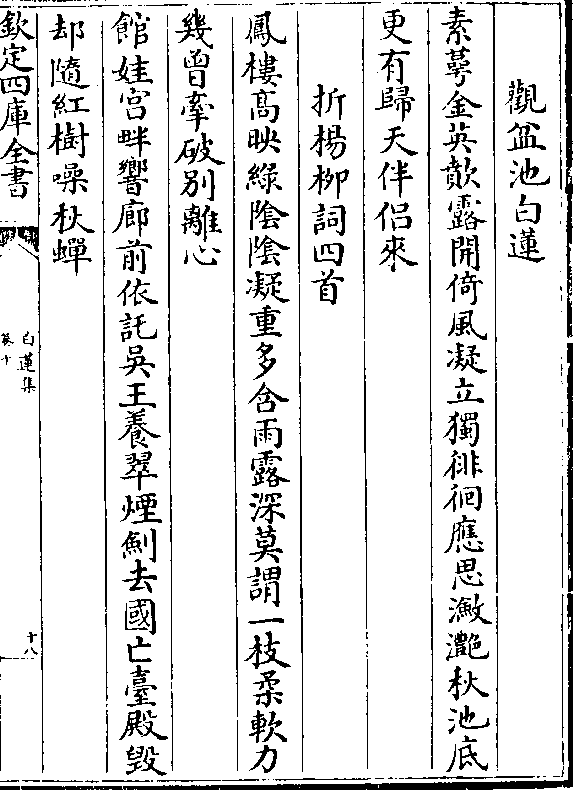 觀盆池白蓮
素蕚金英歕露開倚風凝立獨徘徊應思潋灧秋池底
更有歸天伴侣來
折楊柳詞四首
鳳樓髙映綠陰陰凝重多含雨露深莫謂一枝柔軟力
幾曾牽破别離心
館娃宫畔響廊前依託吳王養翠煙劍去國亡臺殿毁
却隨紅樹噪秋蟬
欽定四庫全書
白蓮集
卷十
十八